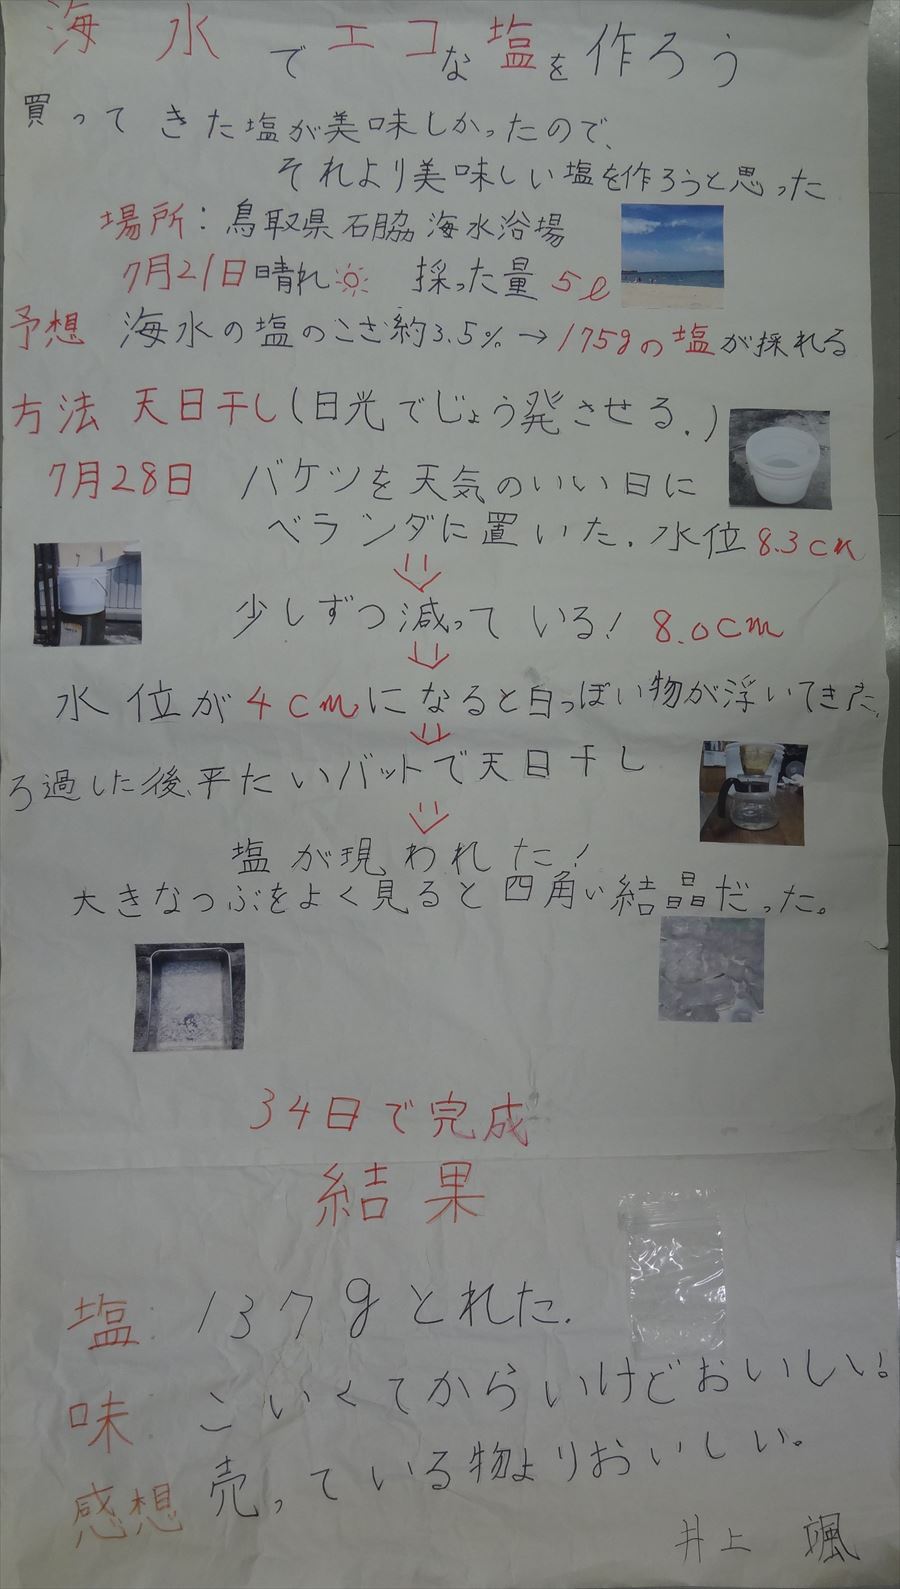 海水でエコな塩を作ろう
買ってきた塩が美味しかったので、
それより美味しい塩を作ろうと思った
場所：鳥取県石脇海水浴場
7月21日晴れ 採った量 5ℓ
予想 海水の塩のこさ約3.5%→175gの塩が採れる
方法 天日干し(日光でじょう発させる.)
7月28日 バケツを天気のいい日に
ベランダに置いた. 水位8.3cm
少しずつ減っている! 8.0cm
水位が4cmになると白っぽい物が浮いてきた.
ろ過した後、平たいバットで天日干し
塩が現われた!
大きなつぶをよく見ると四角い結晶だった。
34日で完成
結果
塩: 137gとれた.
味: こいくてからいけどおいしい!
感想 売っている物よりおいしい。
井上 颯